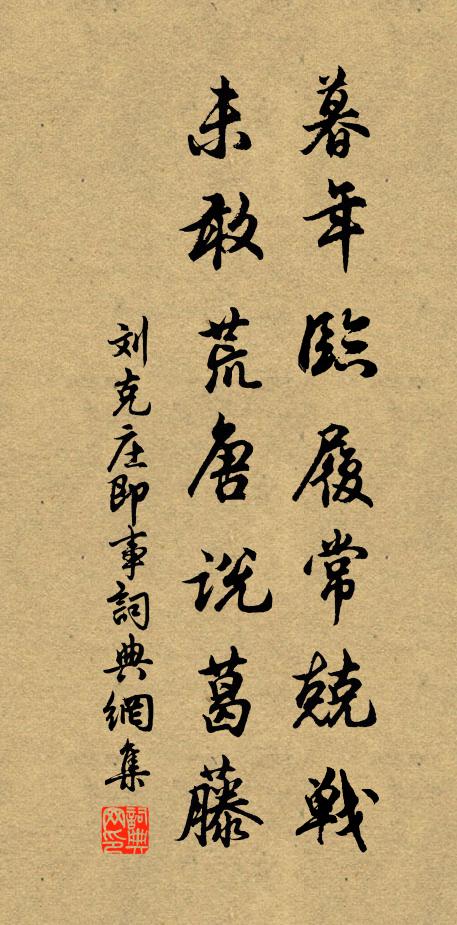 暮年臨履常兢戰
未敢荒唐説葛藤
刘克庄即事詞典網集
詞典网印